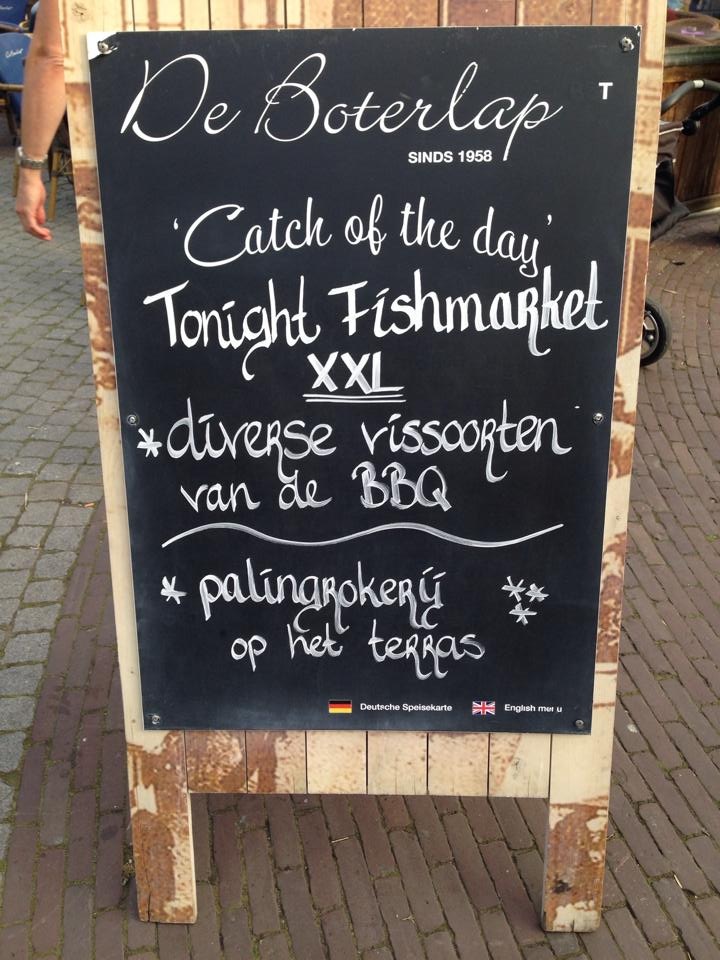 De Boterlap
T
SINDS 1958
'Catch of the day'
Tonight Fishmarket
XXL
*diverse vissoorten
van de BBQ
* palingrokerij ***
op het terras
Deutsche Speisekarte English menu